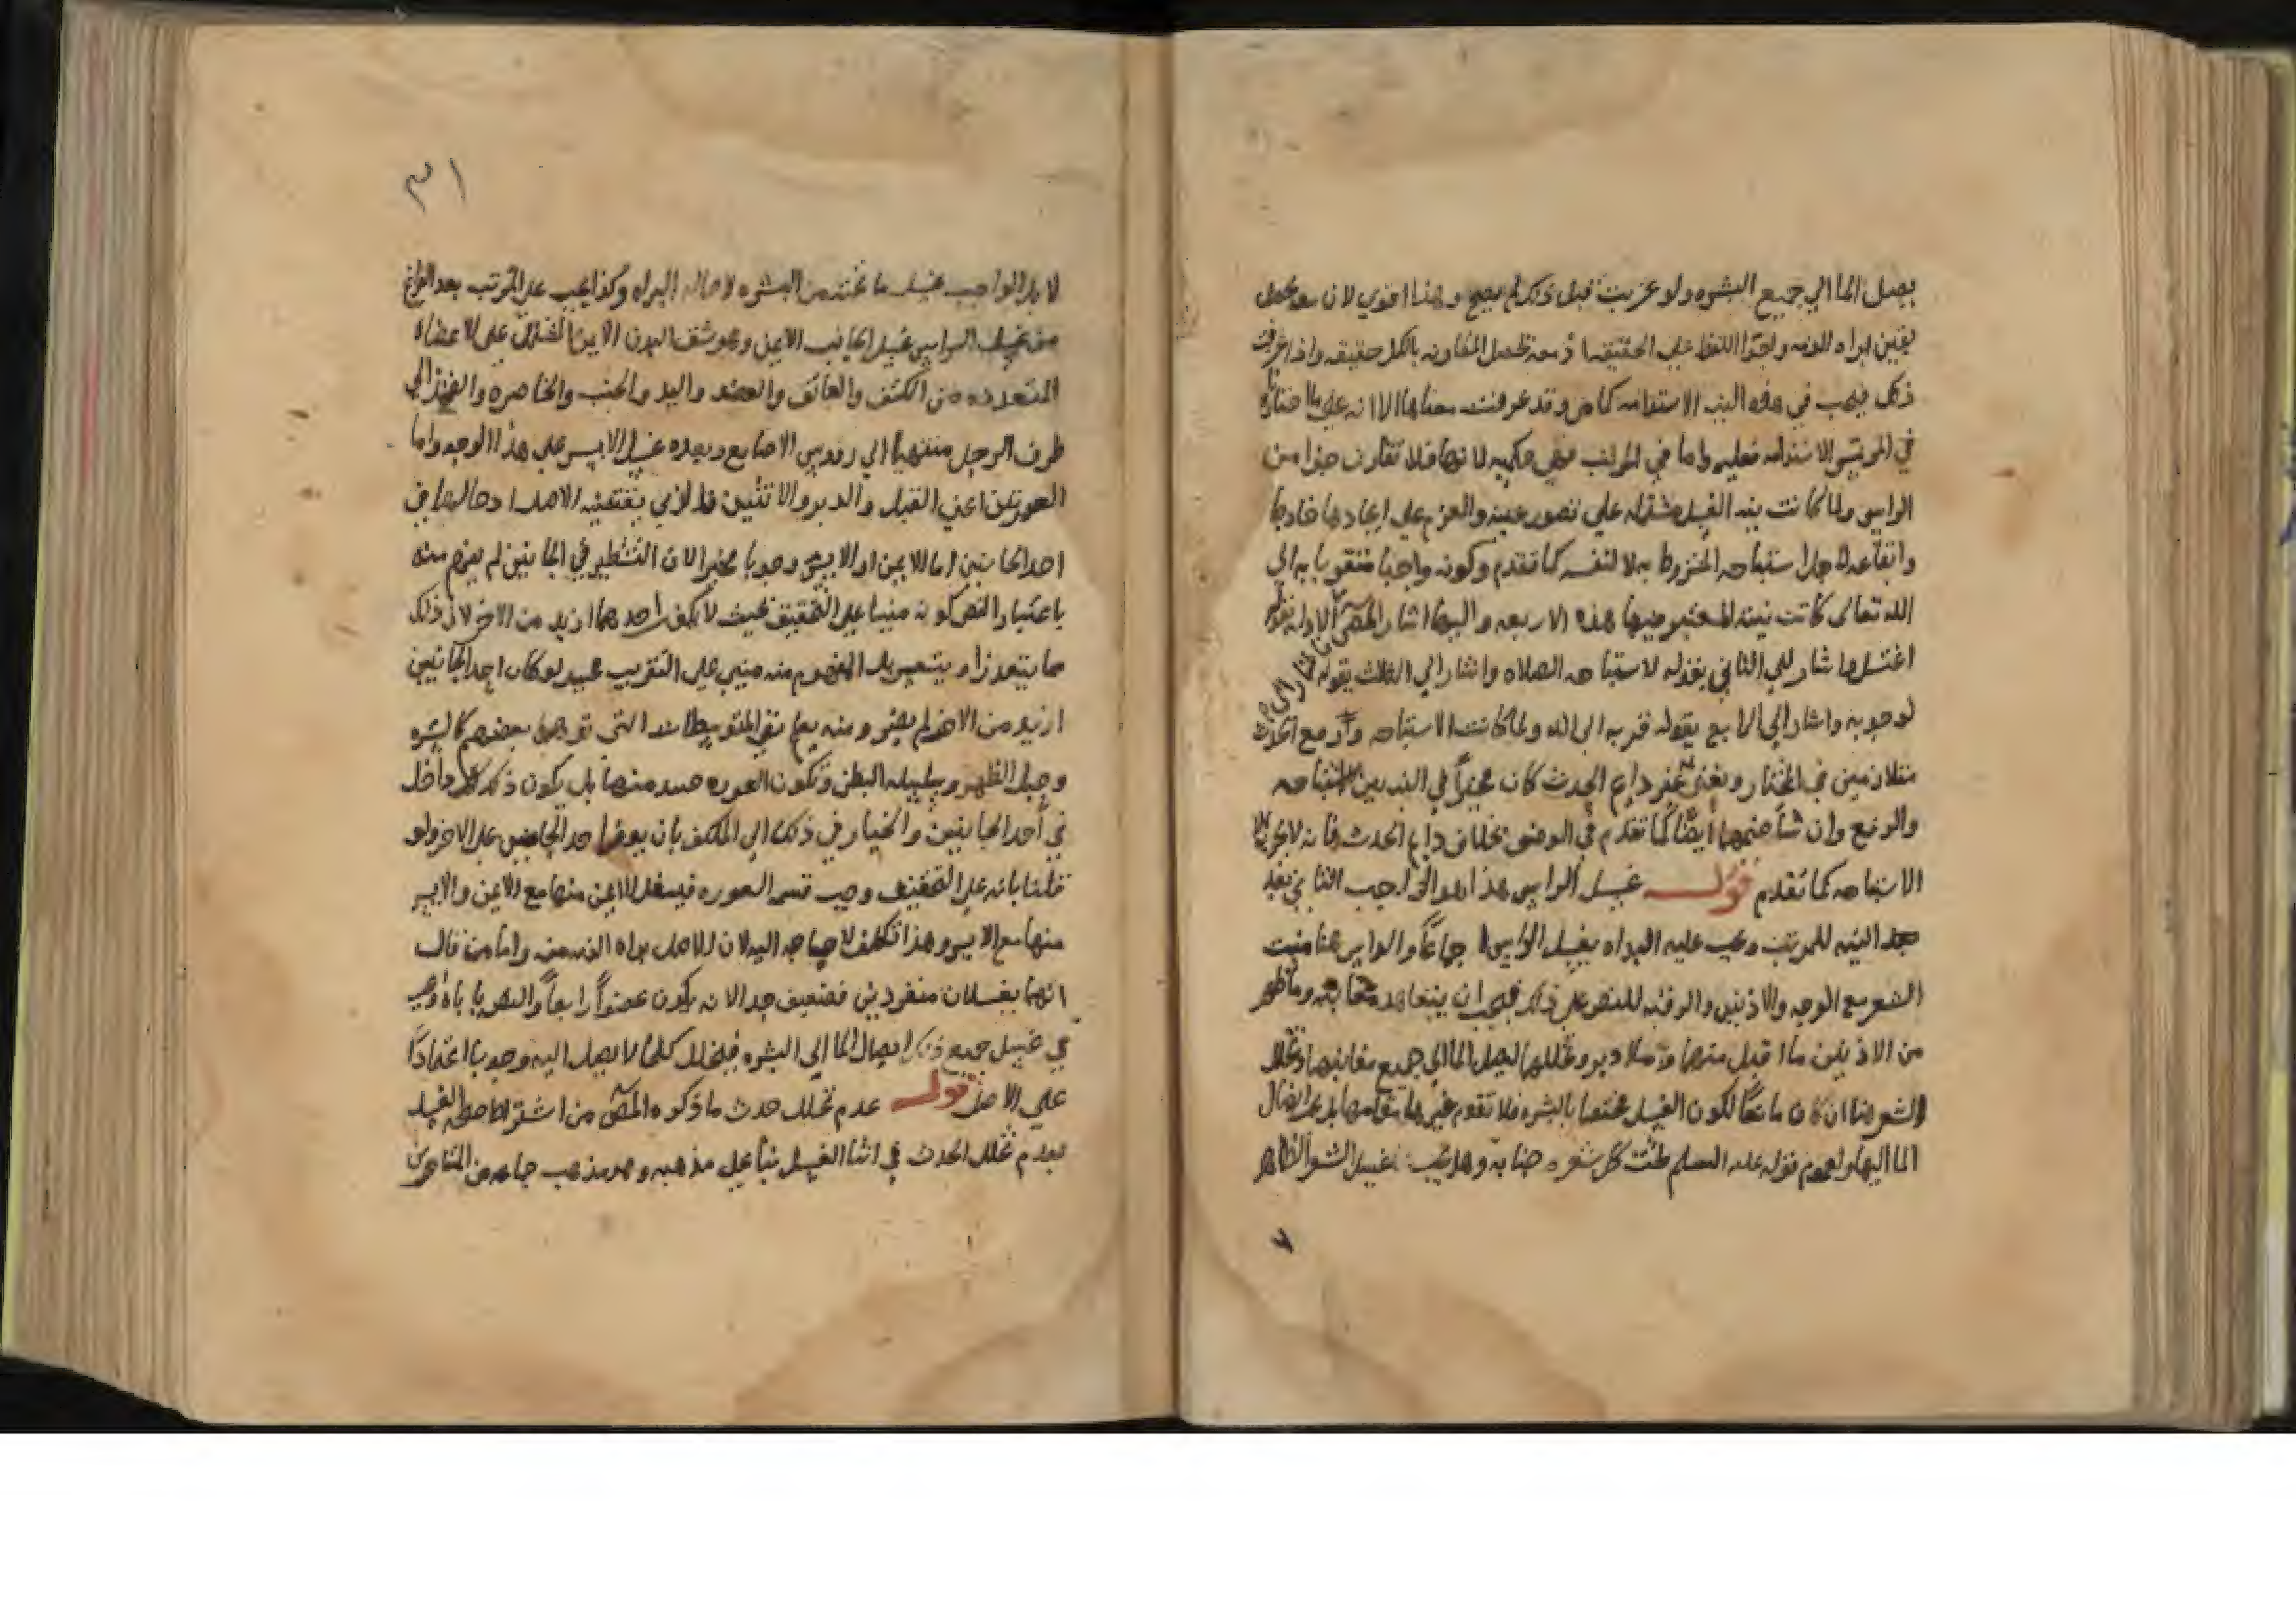 يصل الما الي جميع البشره ولو عزبت قبل ذلك لم يصح وهذا اقوي لان معه يحصل
يقين ابراء الذمه واجرا اللفظ علي الحقيقه اذ معه تحصل المقارنه بالكل حقيقه واذا عرفت
ذلك فيجب في هذه النيه الاستدامه كما مر وقد عرفت معناها الا انه علي ما اختاره
في المرتبين الاستدامه فعليه واما في المرتب فهي حكميه لانها فلا تقارن جزا من
الراس ولما كانت نيه الغسل مشتمله علي تصور عينه والعزم علي ايجادها خارجا
وايقاعه لاجل استباحه المشروط به لا لنفسه كما تقدم وكونه واجبا متقربا به الي
الله تعالى كانت نيته المعتبر فيها هذه الاربعه واليها اشار المص اشار الي الاول بقوله
اغتسل واشار الي الثاني بقوله لاستباحه الصلاه واشار الي الثالث بقوله
لوجوبه واشار الي الرابع بقوله قربه الى الله ولما كانت الاستباحه والرفع الحدث
متلازمين في المختار ونعني غير دايم الحدث كان مخيرا في النيه بين الاستباحه
والرفع وان شا ضمهما ايضا كما تقدم في الوضو بخلاف دايم الحدث فانه لا يجزيه الا
الاستباحه كما تقدم قوله غسل الراس هذا هو الواجب الثاني بعد
بعد النيه للمرتب ويجب عليه البداه بغسل الراس اجماعا والراس هنا منبت
الشعر مع الوجه والاذنين والرقبه للنص علي ذلك فيجب ان يتعاهد مغابنه وما ظهر
من الاذنين ما اقبل منهما وما ادبر وتخللهما ليصل الما الي جميع مغابنها وتخلل
الشعر هنا ان كان مانعا لكون الغسل مختصا بالبشره فلا تقوم غيرها مقامها بل يجب ايصال
الما اليها ولعموم قوله عليه السلم تحت كل شعره جنابه وهل يجب غسل الشعر الظاهر
٧
٣١
لا بل الواجب غسل ما تحته من البشره لاصاله البراه وكذا يجب علي المرتب بعد الفراغ
من غسل الراس غسل الجانب الايمن وهو شق البدن الايمن المشتمل علي الاعضاء
المتعدده من الكتف والعاتق والعضد واليد والجنب والخاصره والفخذ الي
طرف الرجل منتهيا الي رووس الاصابع وبعده غسل الايسر علي هذا الوجه واما
العورتين اعني القبل والدبر والانثيين فالذي يقتضيه الاصل ادخالهما في
احد الجانبين اما الايمن او الايسر وجوبا مخيرا لان التشطير في الجانبين لم يفهم منه
باعتبار النص كونه مبنيا علي التحقيق بحيث لا يكون احدهما ازيد من الاخر لان ذلك
مما يتعذر او يتعسر بل المفهوم منه مبني علي التقريب بحيث لو كان احد الجانبين
ازيد من الاخر لم يضر ومنه يعلم نفي المتوسطات التي توهمها بعضهم كالسره
وحبل الظهر وسلسله البطن وتكون العوره حينيذ منها بل يكون ذلك كله داخل
في احد الجانبين والخيار في ذلك الي المكلف بان يوفر احد الجانبين علي الاخر ولو
قلنا بانه علي التحقيق وجب قسم العوره فيغسل الايمن منها مع الايمن والايسر
منها مع الايسر وهذا تكلف لا حاجه اليه لان الاصل براه الذمه منه واما من قال
انهما يغسلان منفردين فضعيف جدا لانه يكون عضوا رابعا والنص ياباه ويجب
في غسل جميع ذلك ايصال الما الي البشره فيخلل كلما لا يصل اليه وجوبا اعتمادا
علي الاصل قوله عدم تخلل حدث ما ذكره المص من اشتراط صحه الغسل
بعدم تخلل الحدث في اثنا الغسل بنا علي مذهبه وهو مذهب جماعه من المتاخرين